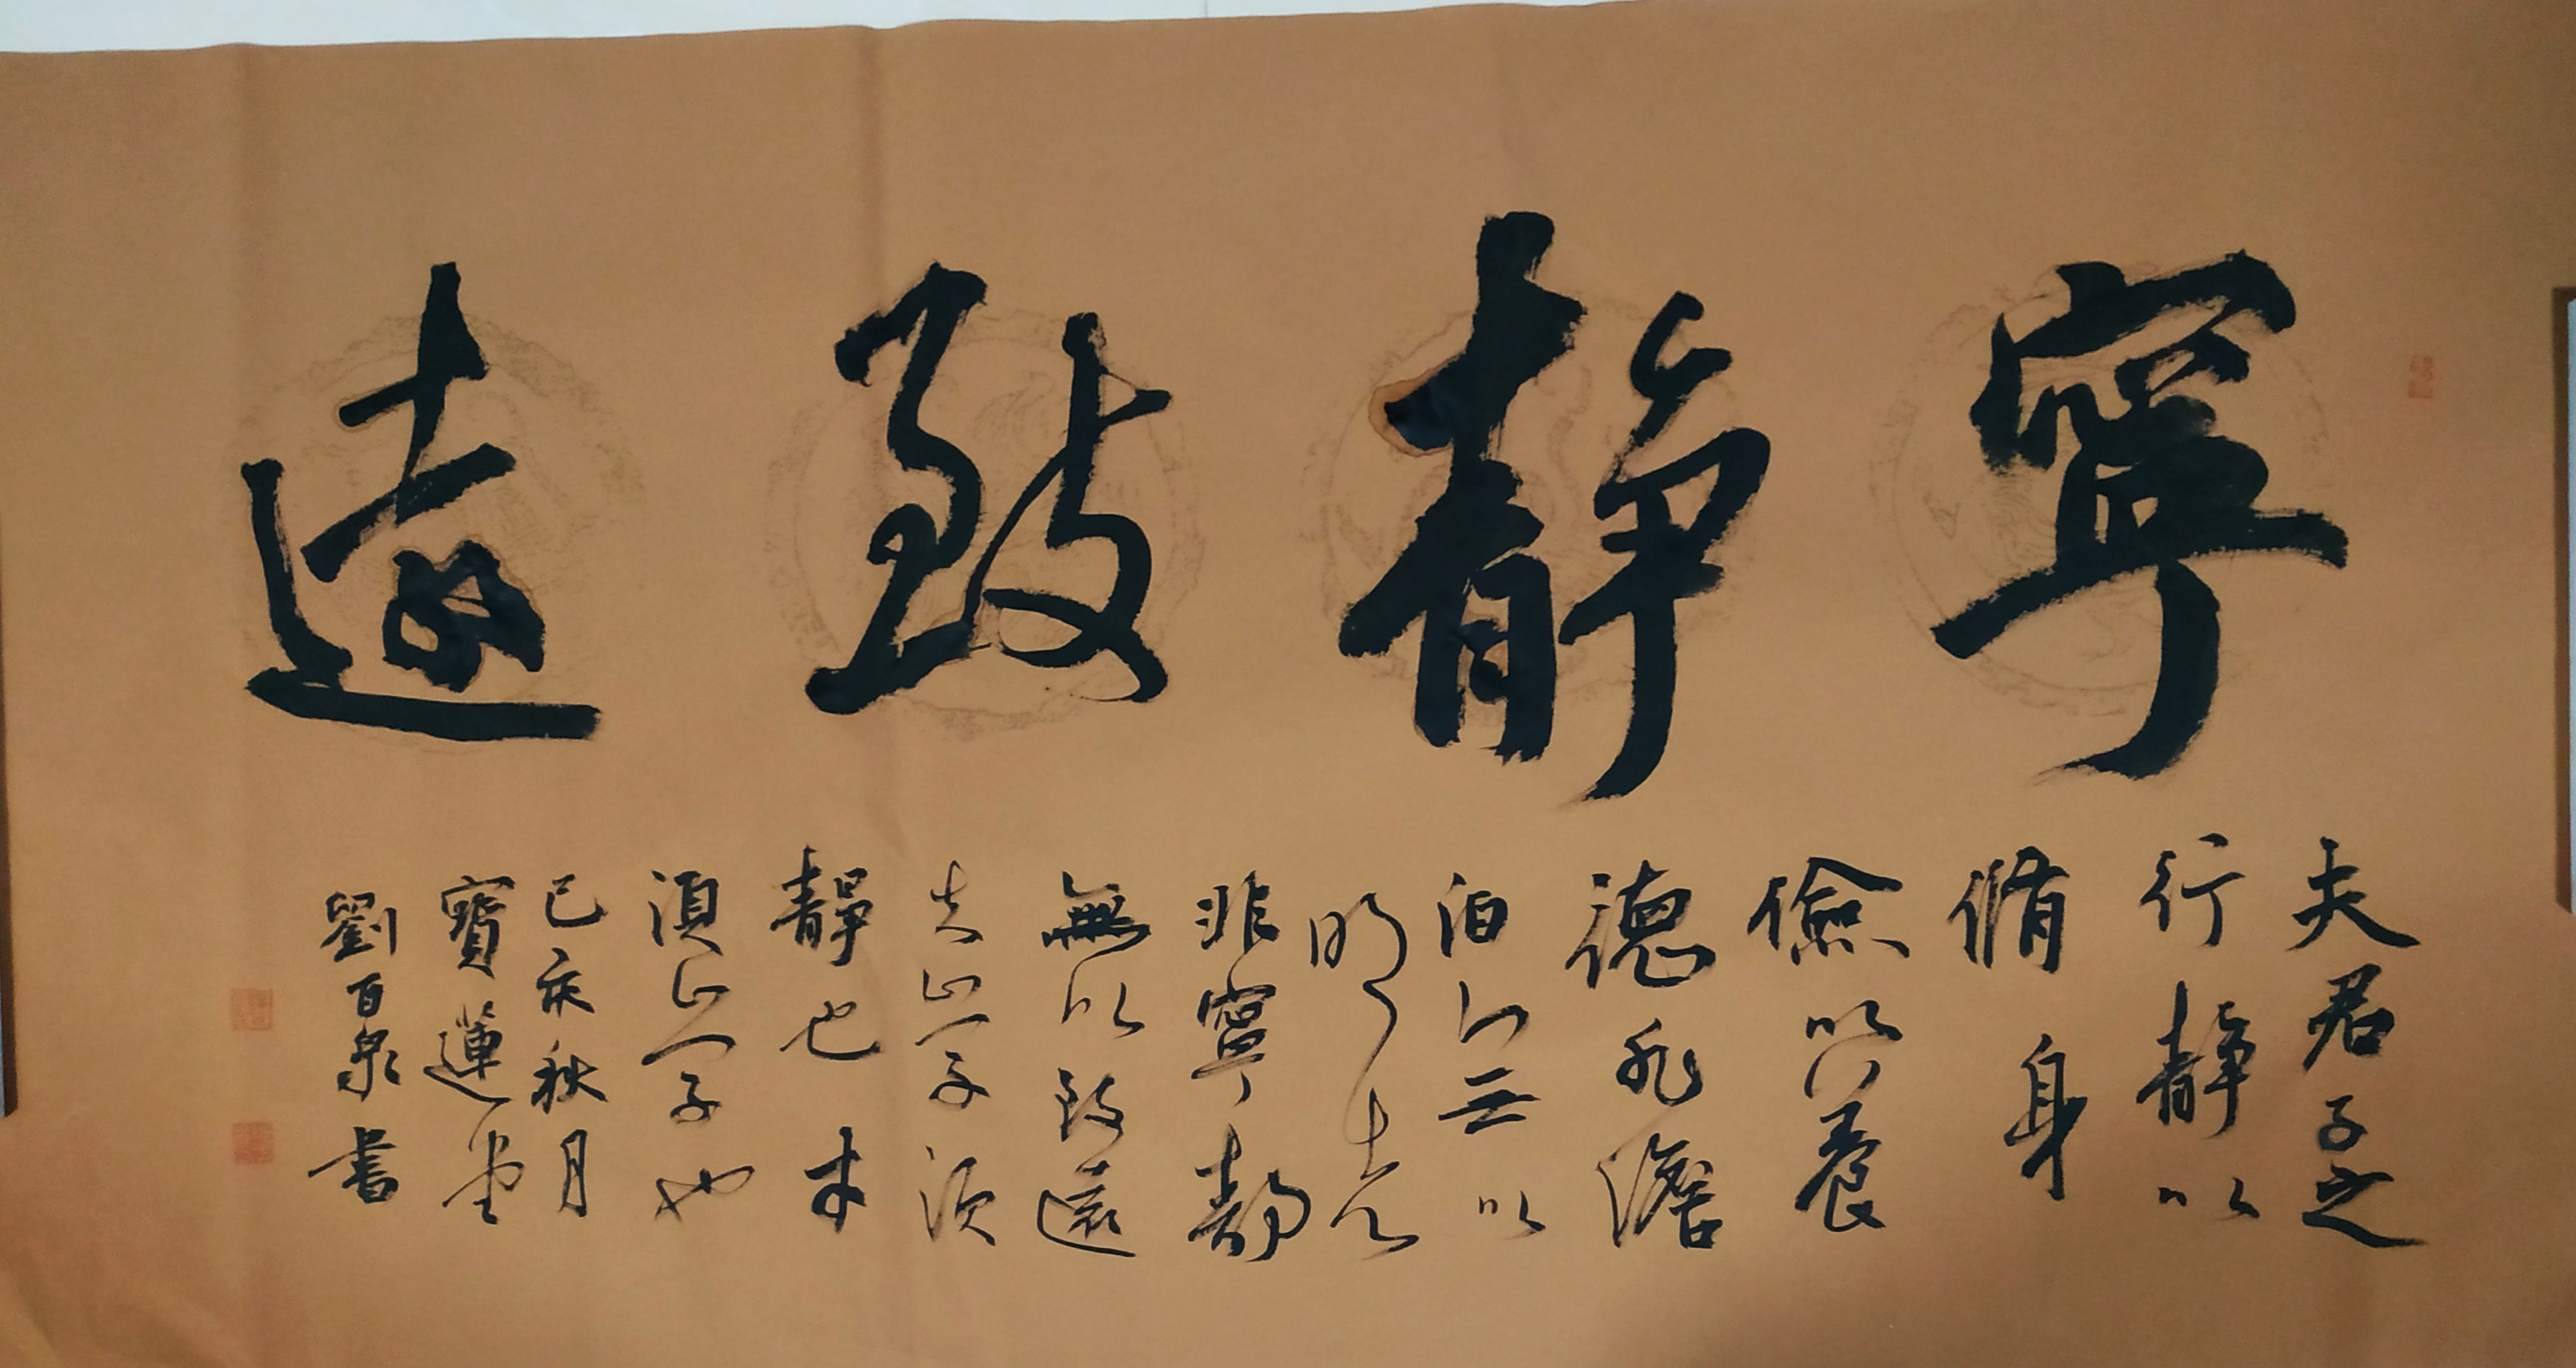 寧靜致遠
夫君子之
行靜以
脩身
儉以養
德非澹
泊無以
明志
非寧靜
無以致遠
夫學須
靜也才
須學也
己亥秋月
寶蓮堂
劉百泉書